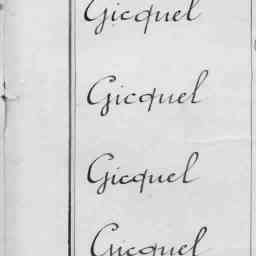 Gicquel
Gicquel
Gicquel
Gicquel